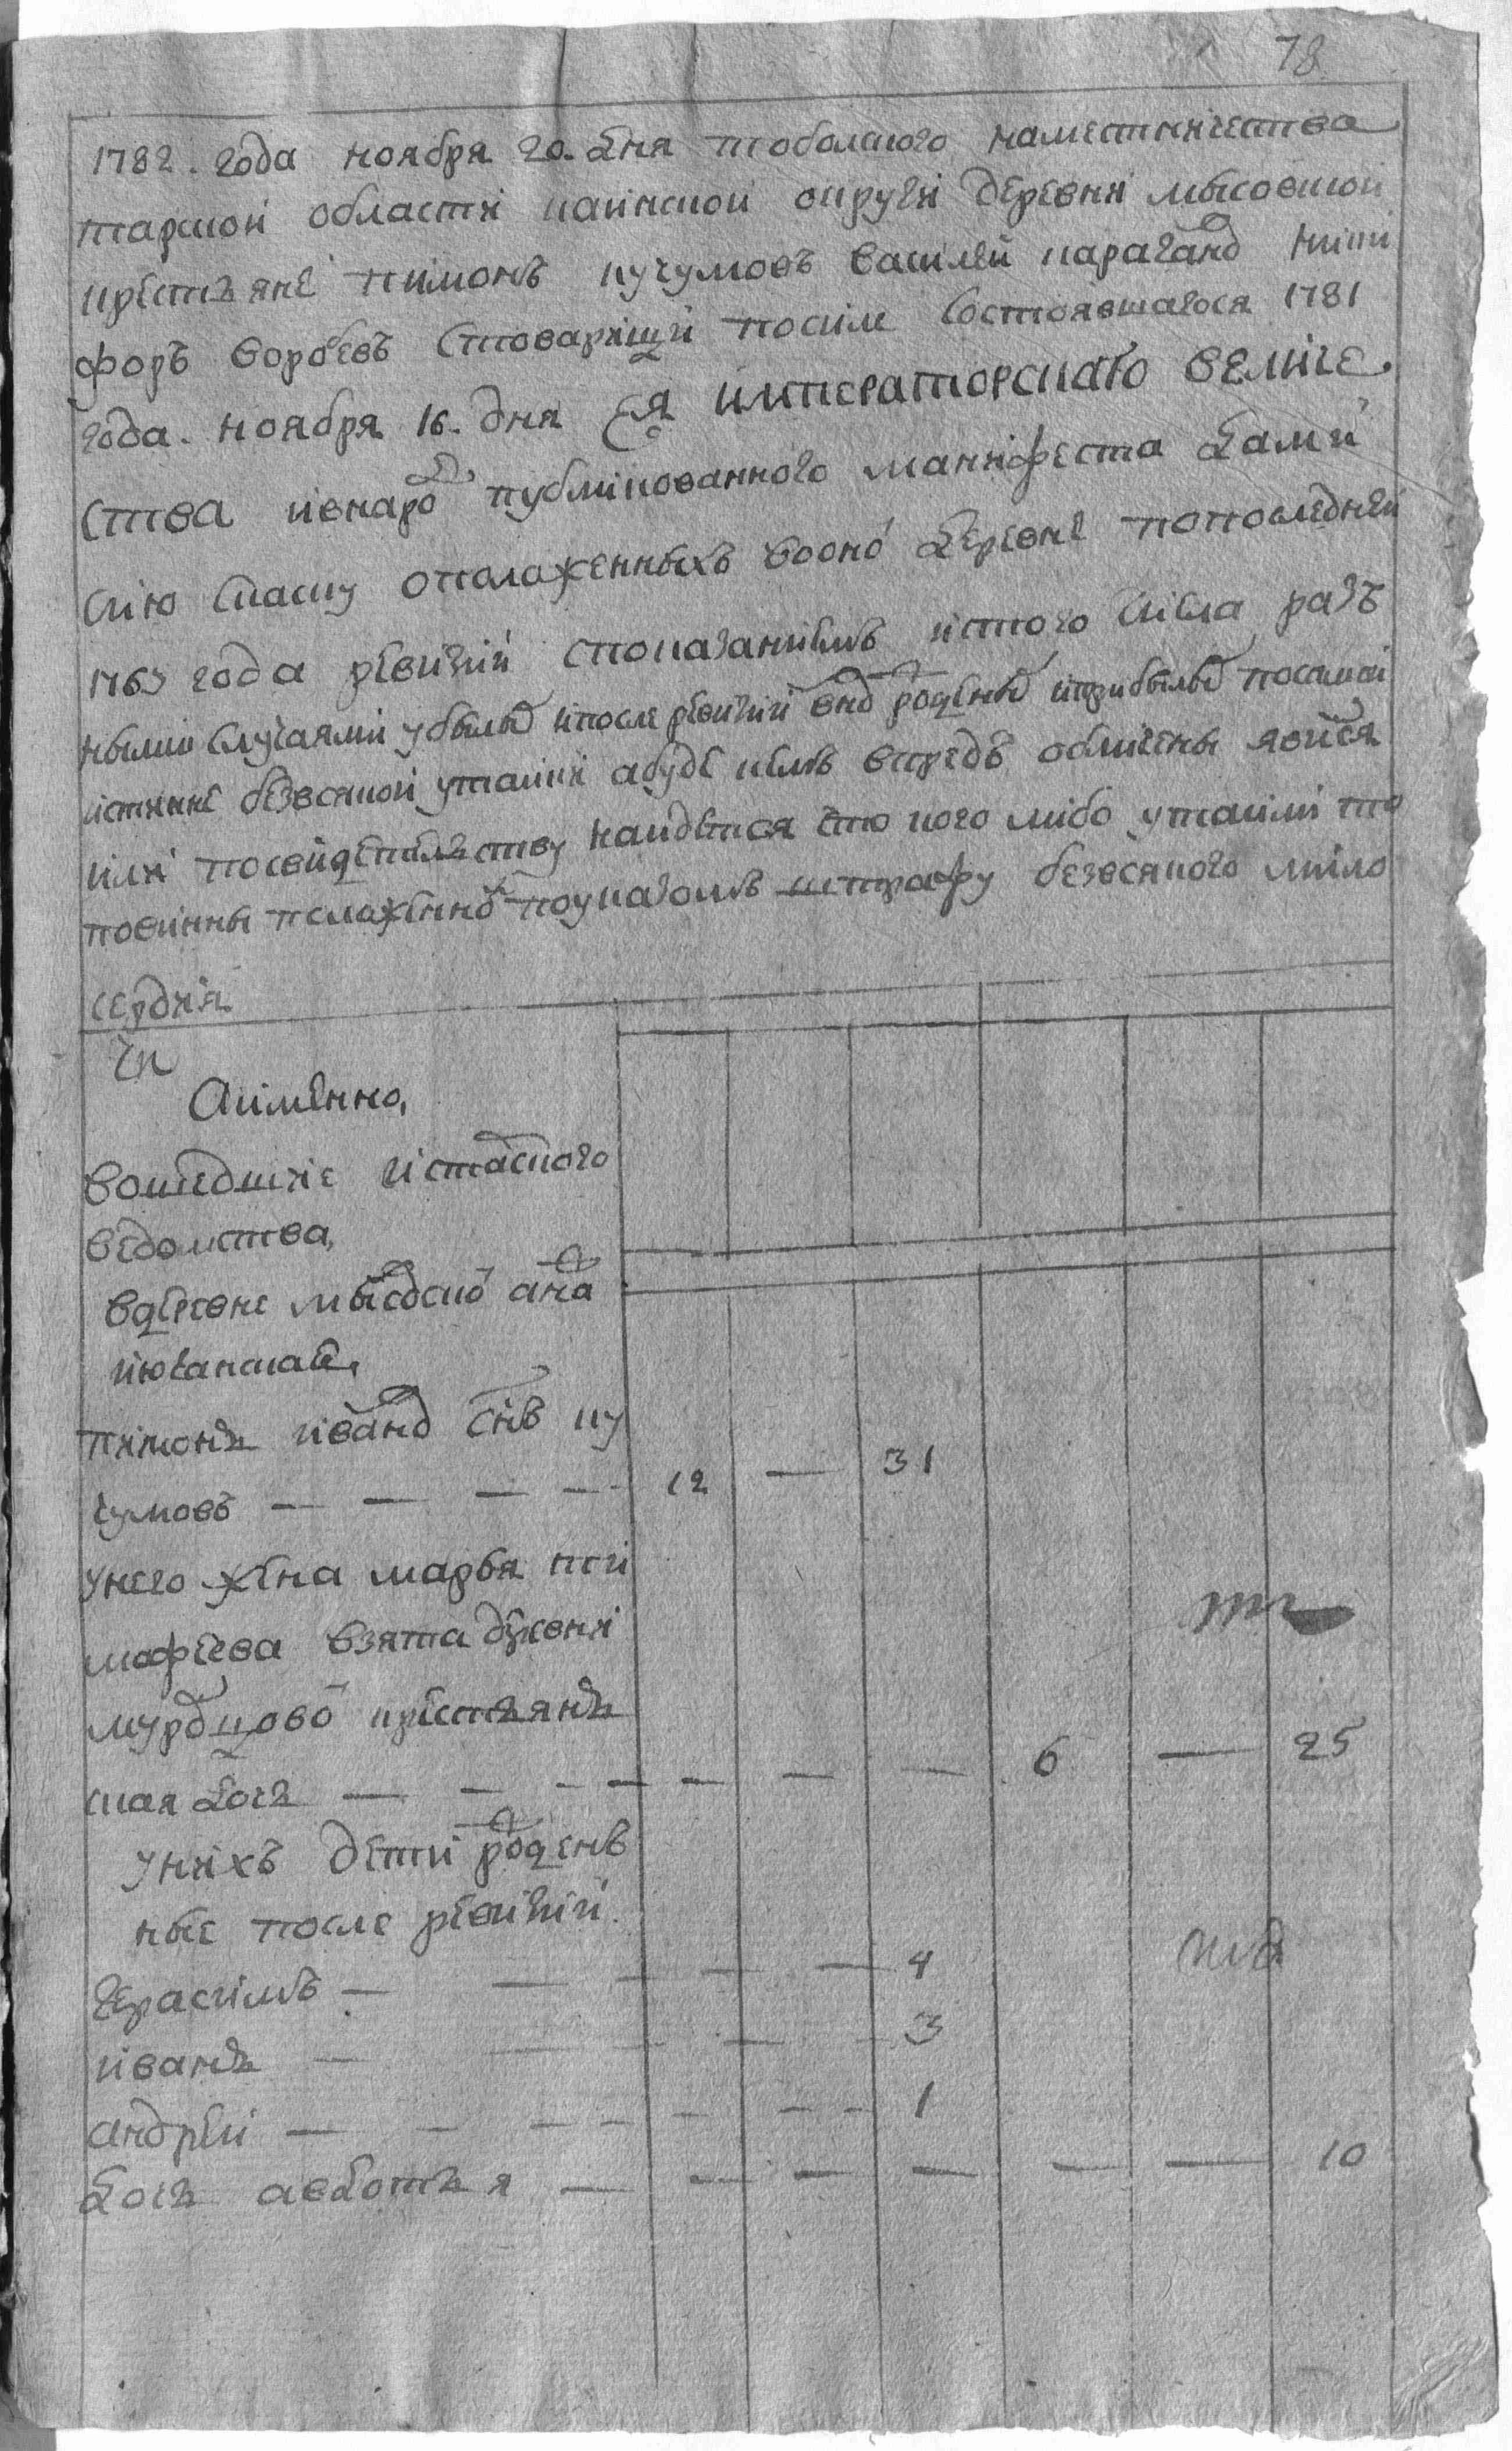 78
1782. года ноября 20. дня тоболского наместничества
тарской области каинской округи деревни мысовской
крестьяне пимонъ кучумовъ василей карагановъ ники
форъ воробьевъ стоварищи посиле состоявшагося 1781
года. ноября 16. дня ея императорскаго величе
ства ивнародъ публикованного манифеста дали
сию скаску ополаженныхъ вооной деревне попоследней
1763 года ревизии споказаниемъ истого числа разъ
ными случаями убылыхъ ипосле ревизии вновь рожденныхъ иприбылыхъ посамой
истинне безвсякой утайки абуде кемъ впредь обличены явимся
или посвидетельству найдется что кого либо утаили то
повинны положенному поуказомъ штрафу безвсякого мило
сердия
Аимянно,
вошедшие истарского
ведомства,
вдеревне мысовской она
июванская,
пимонъ ивановъ снъ ку
чумовъ — — — — 12 — 31
унего жена марья ти
мофеева взята деревни
мурзцовой крестьянъ
ская дочь — — — — — — — 6 — 25
унихъ дети рожденъ
ные после ревизии
герасимъ — — — — — 4
иванъ — — — — 3
андрей — — — — — — — 1
дочь авдотья — — — — — — 10